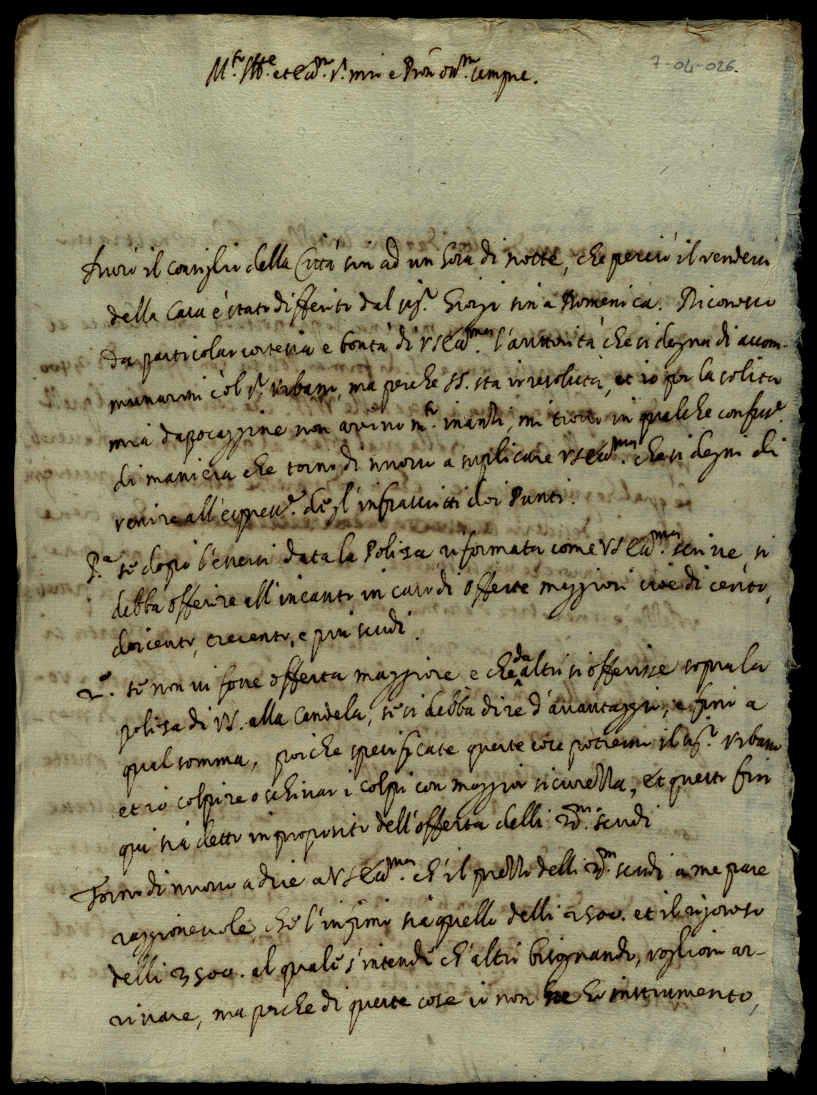 M.to Ill.re et Ecc.mo S.r mio e Pron oss.mo sempre.
7-04-026.
Durò il consiglio della Città sin ad un hora di notte, che perciò il vendersi
della Casa è stato differito dal sig.r Giorgi sin a Domenica. Riconosco
da particolar cortesia e bontà di VS Ecc.ma l'auttorità che si degna di accom-
munarmi col S.r Urbani, ma perche SS. sta irresoluta, et io per la solita
mia dapocaggine non arrivo m.to inanti, mi trovo in qualche confus.e
di maniera che torno di nuovo a suplicare VS Ecc.ma che si degni di
venire all'espress.e degl'infrascritti doi Punti.
P.o se dopò l'esersi data la Polisa riformata come VS Ecc.ma scrive si
debba offerire all'incanto in caso di offerte maggiori cioè di cento,
doicento, trecento, e più scudi.
2.o se non vi fosse offerta maggiore e che da altri si offerisse sopra la
polisa di VS. alla Candela, se si debba dire d'avantaggio, e sino a
qual somma, perche specificate queste cose potremo il sig.r Urbani
et io colpire o schivar i colpi con maggior sicurezza, et questo sin
qui sia detto in proposito dell'offerta delli 2m. scudi
Torno di nuovo a dire a VS Ecc.ma ch'il prezzo delli 3m scudi a me pare
raggionevole, che l'infimo sia quello delli 2500. et il rigoroso
delli 3500. al quale s'intende ch'altri bisognando, voglion ar-
rivare, ma perche di queste cose io non ho instrumento,